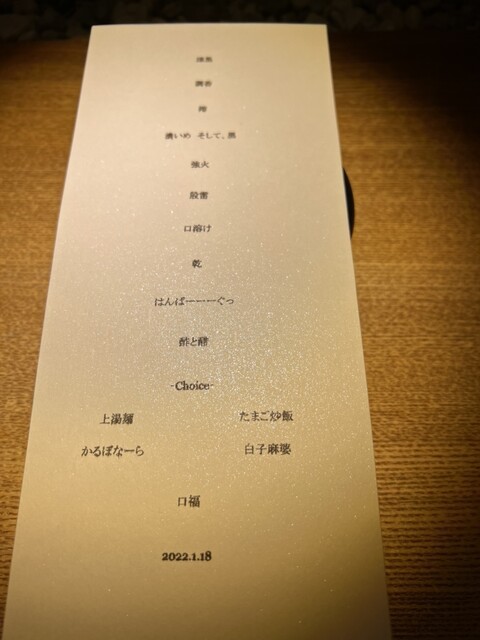 濃いめ そして、黒
強火
殷雷
口溶け
乾
はんばーーーぐっ
酢と醋
-Choice-
上湯麺 たまご炒飯
かるぼなーら 白子麻婆
口福
2022.1.18